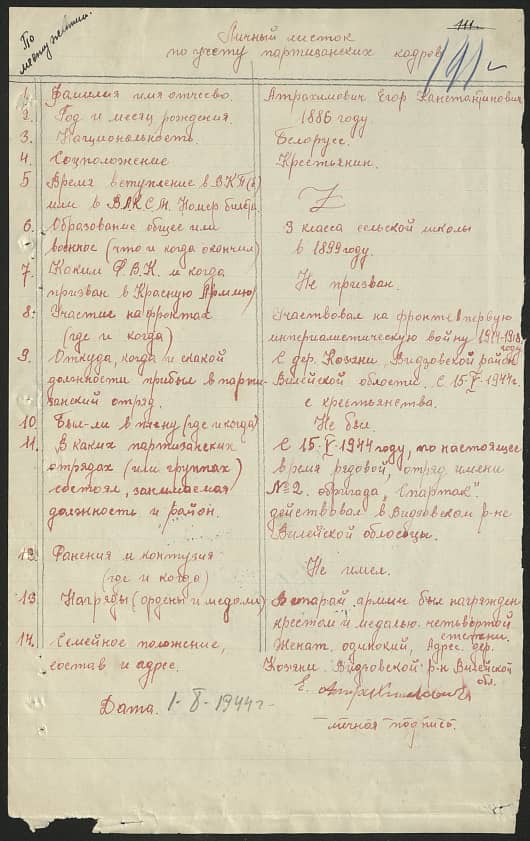 По
месту жетки.
111
191
Личный листок
по учету партизанских кадров
1. Фамилия имя отчесво. Атрахимович Егор Канстантинович
2. Год и месяц рождения. 1886 году.
3. Национальность. Белорусс.
4. Соцположение Крестьянин.
5 Время вступление в ВКП(б)
или в ВЛКСМ. Номер билета Z
6. Образование общее или 3 класса сельской школы
военное (что и когда окончил) в 1899 году.
7. Каким Р.В.К. и когда Не призван.
призван в Красную Армию
8. Участие на фронтах Участвовал на фронте в первую
(где и когда) империалистическую войну 1914-1918
году
9. Откуда, когда и с какой С дер. Козяни, Видзовской район
должности прибыл в парти- Вилейской области. С 15-V-1944г.
занский отряд. с крестьянства.
10. Был-ли в плену (где и когда) Не был.
11. В каких партизанских С 15-V-1944 году, по настоящее
отрядах (или группах) время рядовой, отряд имени
состоял, занимаемая №2. бригада „Спартак".
должность и район. действовал в Видзовском р-не
Вилейской области.
12. Ранения и контузия Не имел.
(где и когда)
13 Награды (ордены и медали) В старай армии был награжден
крестом и медалью четвьортой
степени.
14. Семейное положение, Женат, одинокий, Адрес. дер.
состав и адрес. Козяни. Видзовской р-н Вилейской
обл.
Е. Атрахимович
Дата. 1-8-1944г
личная подпись.